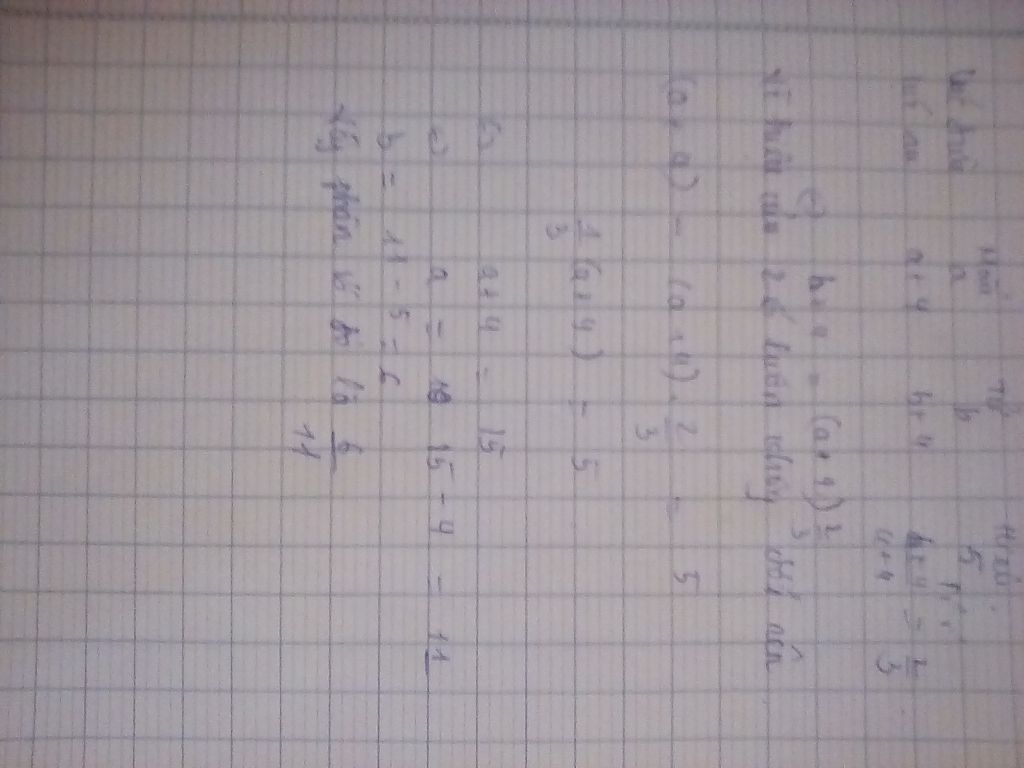 Mẫu Tử Hiệu
Lúc đầu a b 5
Lúc sau a+4 b+4 b+4/a+4 = 2/3
=) b+4 = (a+4) 2/3
Vì hiệu của 2 số luôn không đổi nên
(a+4) - (a+4) . 2/3 = 5
1/3 (a+4) = 5
=) a+4 = 15
=) a = 15 - 4 = 11
b = 11 - 5 = 6
Vậy phân số đó là 6/11